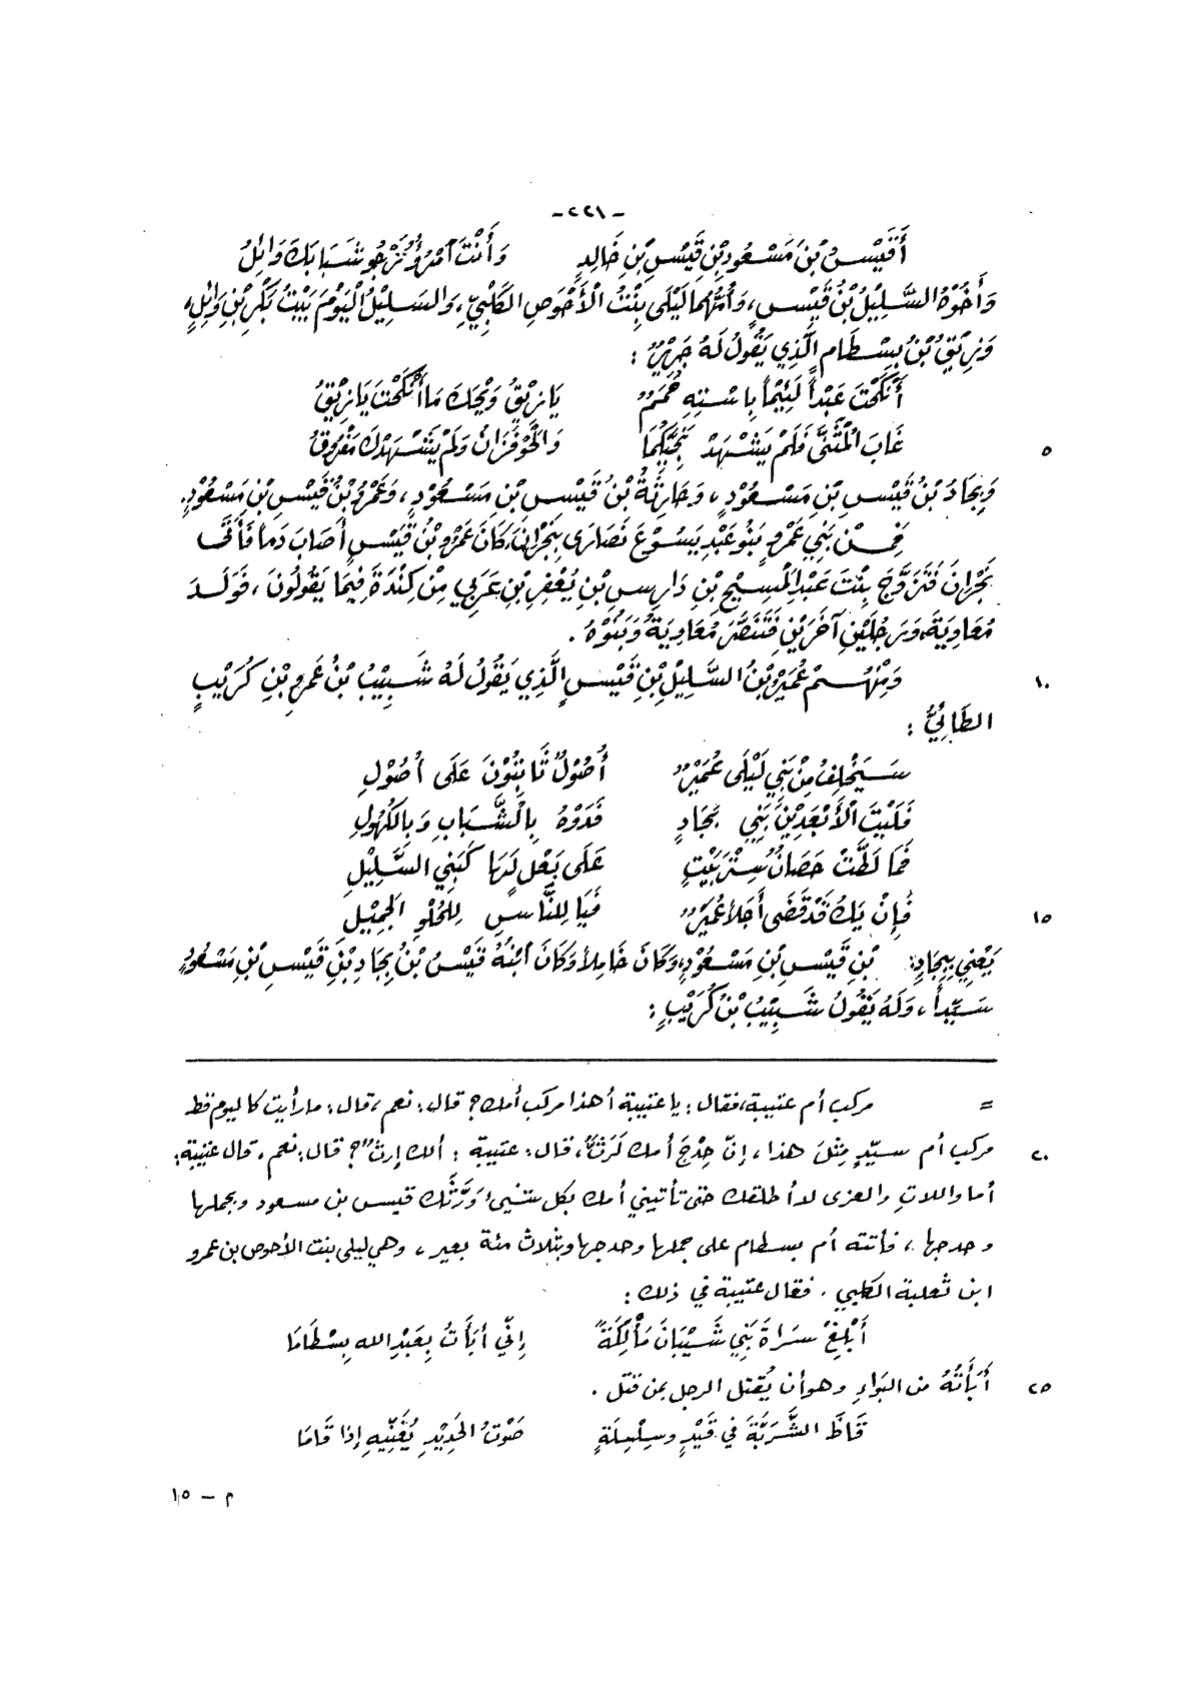 -٢٢١-
أَقَيْسُ بْنَ مَسْعُودِ بْنِ قَيْسِ بْنِ خَالِدٍ وَأَنْتَ آمْرُؤٌ تَرْجُو شَبَابَكَ وَائِلُ
وَأَخُوْهُ السَّلِيْلُ بْنُ قَيْسٍ، وَأُمُّهُمَا لَيْلَى بِنْتُ الأَحْوَصِ الكَلْبِيِّ، وَالسَلِيْلُ الْيَوْمَ بَيْتُ بَكْرِ بْنِ وَائِلٍ،
وَزِيْقُ بْنُ بِسْطَامٍ الَّذِي يَقُولُ لَهُ جَرِيْرٌ :
أَنْكَحْتَ عَبْداً لَئِيْماً بِاسْتِهِ حُمَمٌ يَا زِيْقُ وَيْحَكَ مَا أَنْكَحْتَ يَا زِيْقُ
غَابَ الْمُثَنَّى فَلَمْ يَشْهَدْ نَجِيَّكُمَا وَالحَوْفَزَانُ وَلَمْ يَشْهَدْكَ مَفْرُوقُ ٥
وَبِجَادَ بْنُ قَيْسِ بْنِ مَسْعُودٍ، وَحَارِثَةُ بْنُ قَيْسِ بْنِ مَسْعُوْدٍ، وَعَمْرُو بْنُ قَيْسِ بْنِ مَسْعُوْدٍ.
فَمِنْ بَنِي عَمْرٍو بَنُو عَبْدِ يَسُوْعَ نَصَارَى بِنَجْرَانَ، كَانَ عَمْرُو بْنُ قَيْسٍ أَصَابَ دَماً فَأَتَى
نَجْرَانَ فَتَزَوَّجَ بِنْتَ عَبْدِ الْمَسِيْحِ بْنِ دَارِسِ بْنِ يُعْفِرِ بْنِ عَرَبِي مِنْ كِنْدَةَ فِيْمَا يَقُولُونَ، فَوَلَدَ
مُعَاوِيَةَ، وَرَجُلَيْنِ آخَرَيْنِ فَتَنَصَّرَ مُعَاوِيَةُ وَبَنُوْهُ .
وَمِنْهُمْ عُمَيْرُ بْنُ السَّلِيْلِ بْنِ قَيْسٍ الَّذِي يَقُولُ لَهُ شَبِيْبُ بْنُ عَمْرِو بْنِ كُرَيْبٍ ١٠
الطَائِيُّ :
سَيَخْلِفُ مِنْ بَنِي لَيْلَى عُمَيْرٌ أُصُوْلٌ ثَابِتُوْنَ عَلَى أُصُوْلِ
فَلَيْتَ الْأَبْعَدِيْنَ بَنِي بِجَادٍ فَدَوْهُ بِالْشَّبَابِ وَبِالكُهُوْلِ
فَمَا لَطَّتْ حَصَانٌ سِتْرَ بَيْتٍ عَلَى بَعْلٍ لَهَا كَبَنِي السَّلِيْلِ
فَإِنْ يَكُ قَدْ قَضَى أَجَلاً عُمَيْرٌ فَيَا لِلنَّاسِ لِلْحُلْوِ الجَمِيْلِ ١٥
يَعْنِي بِبِجَادٍ: بْنِ قَيْسِ بْنِ مَسْعُوْدٍ، وَكَانَ خَامِلاً وَكَانَ آبْنُهُ قَيْسُ بْنُ بِجَادِ بْنِ قَيْسِ بْنِ مَسْعُوْدٍ
سَيِّداً، وَلَهُ يَقُولُ شَبِيْبُ بْنُ كُرَيْبٍ :
= مركب أم عتيبة، فقال: يا عتيبة أهذا مركب أمك؟ قال: نعم، قال: ما رأيت كاليوم قط
مركب أم سيّدٍ مِثلَ هذا، إنّ حِدْجَ أمك لَرَثٌّ، قال: عتيبة: ألك إرثٌ؟ قال: نعم، قال عتيبة: ٢٠
أما واللاتِ والعزى لا أطلقك حتى تأتيني أمك بكل شيءٍ وَرَّثَك قيس بن مسعود وبجملها
وحدجها، فأتته أم بسطام على جملها وحدجها وبثلاث مئة بعير، وهي ليلى بنت الأحوص بن عمرو
ابن ثعلبة الكلبي . فقال عتيبة في ذلك :
أَبْلِغْ سَرَاةَ بَنِي شَيْبَانَ مَأْلَكَةً إِنِّي أَبَأْتُ بِعَبْدِ الله بِسْطَامَا
أَبَأْتُهُ من البَوَاءِ وهو أن يُقتل الرجل بمن قتل . ٢٥
قَاظَ الشَّرَبَّةَ في قَيْدٍ وسِلْسِلَةٍ صَوْتُ الحَدِيْدِ يُغَنِّيهِ إذا قَامَا
م - ١٥